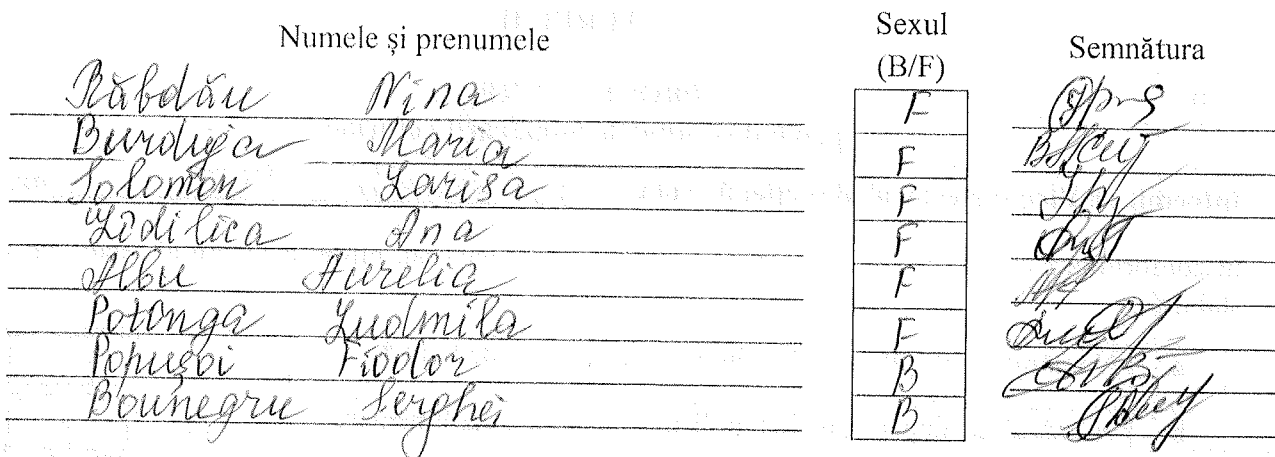 Numele și prenumele Sexul (B/F) Semnătura
Răbdău Nina F
Burduja Maria F
Solomon Larisa F
Ana F
Albu Aurelia F
Potînga Ludmila F
Popușoi Fiodor B
Bounegru Serghei B